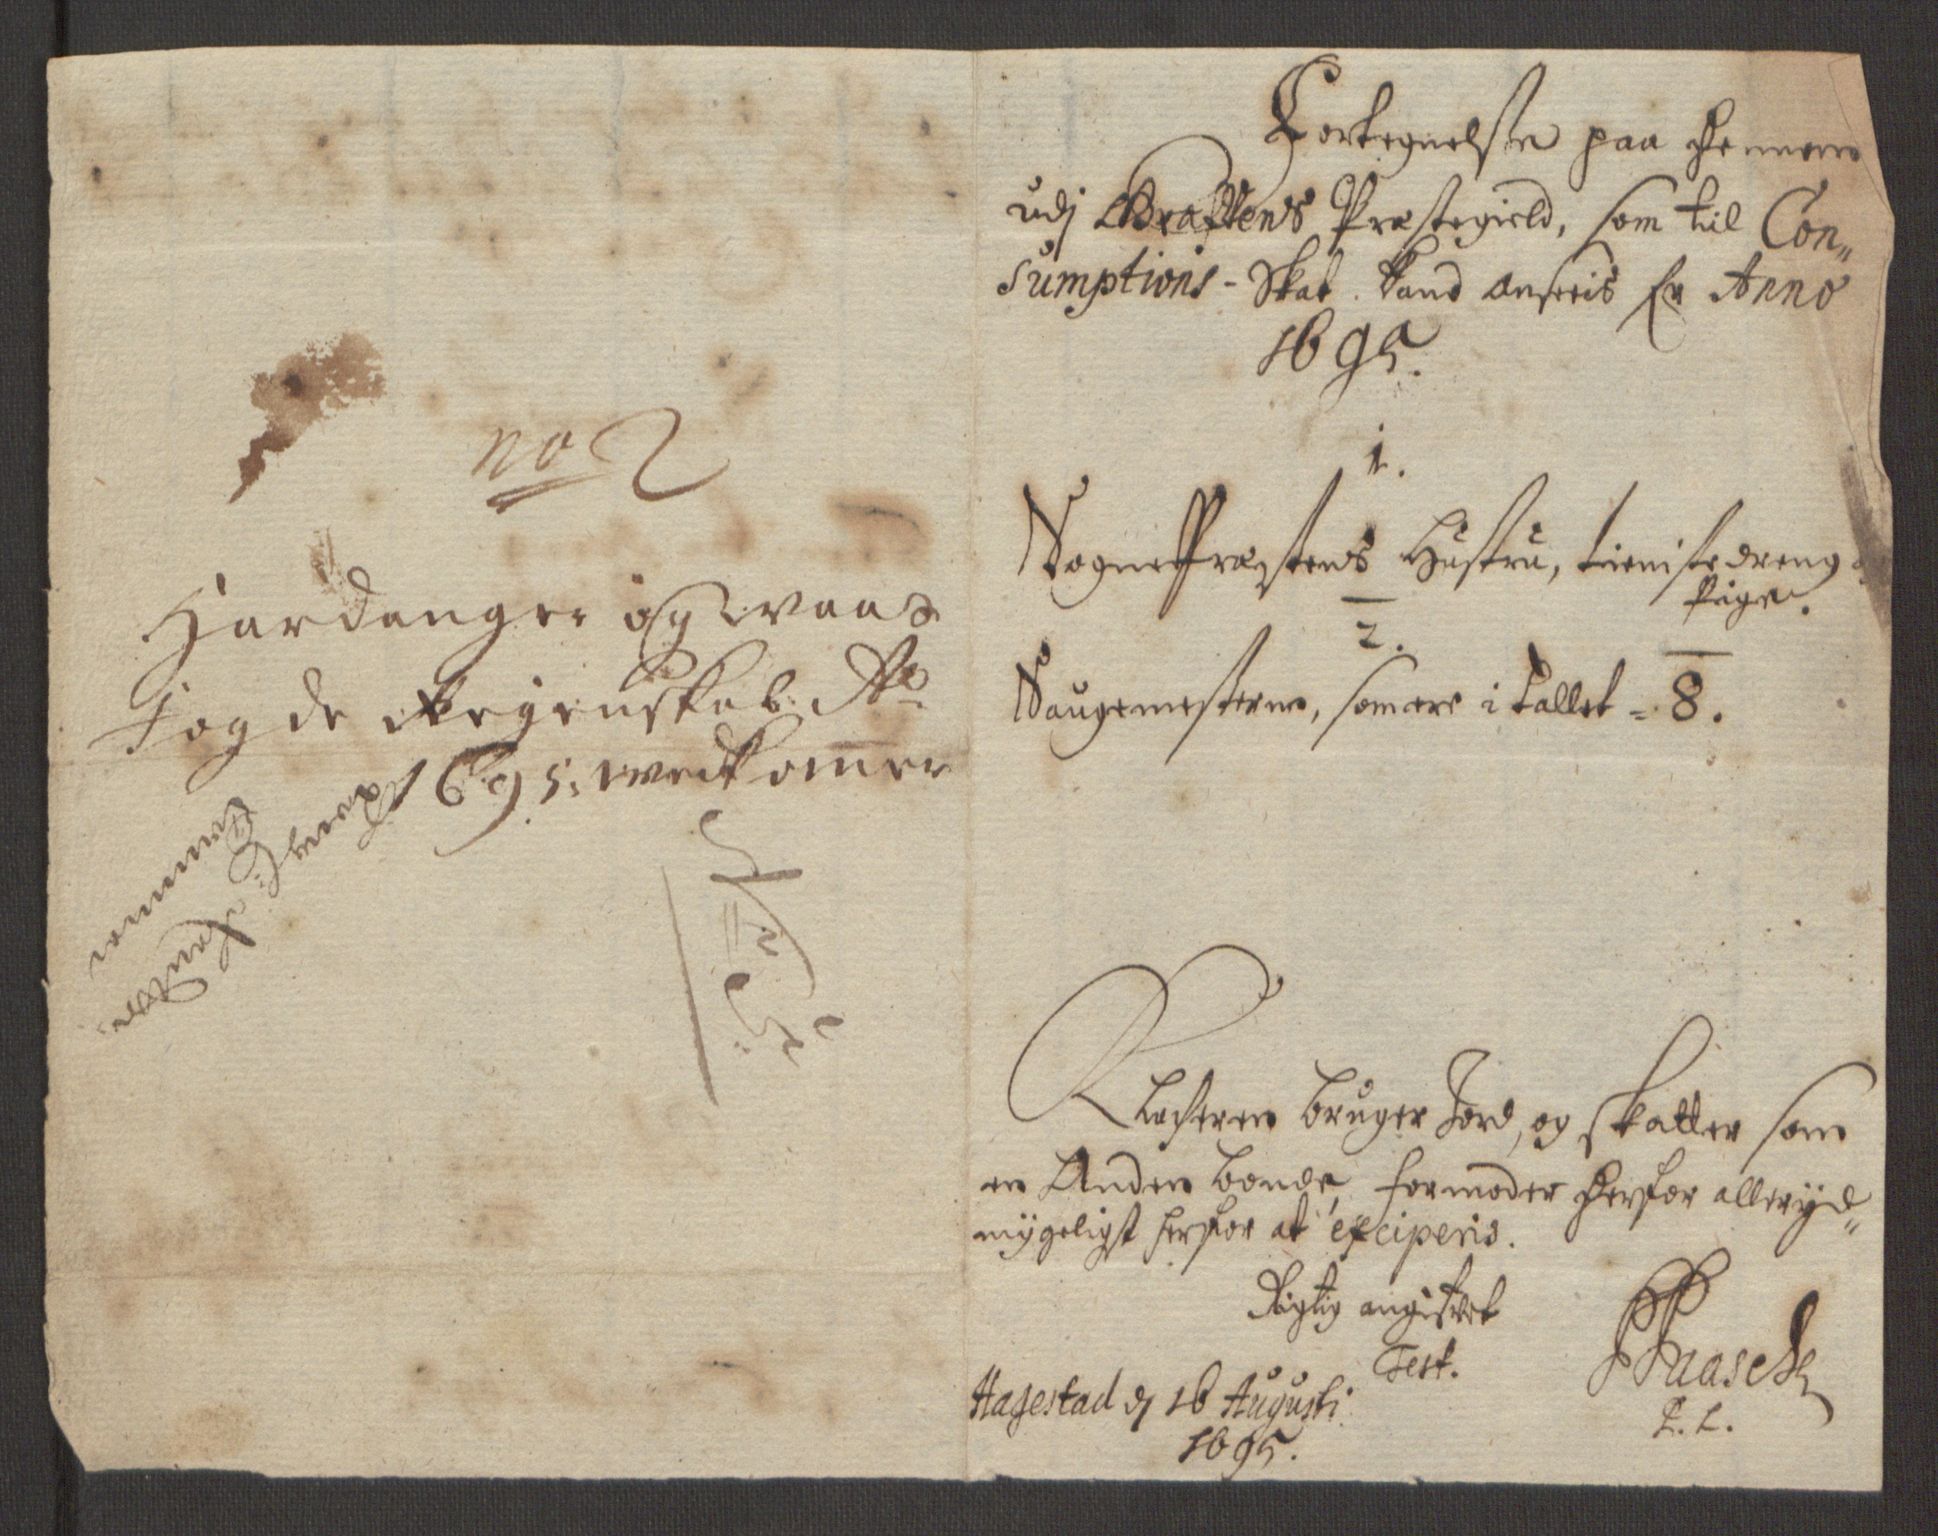 no 2
Hardanger og waas
Fogde Regenskab Ao
1695. wedkommer
Fortegnelse paa dennem
udj Graffvens Præstegield, som til Con„
sumptions-Skat kand ansees for Anno
1695.
1.
SognePræstens Hustru, tienistedreng
Pige.
2.
Saugemesterne, som ere i tallet = 8.
Klocheren bruger Jord, og skatter som
en Anden bonde, formoder derfor allerÿd„
mÿgeligst herfor at exciperis.
Rigtig angifvet
Test.
Hagestad d 16 Augusti
1695.